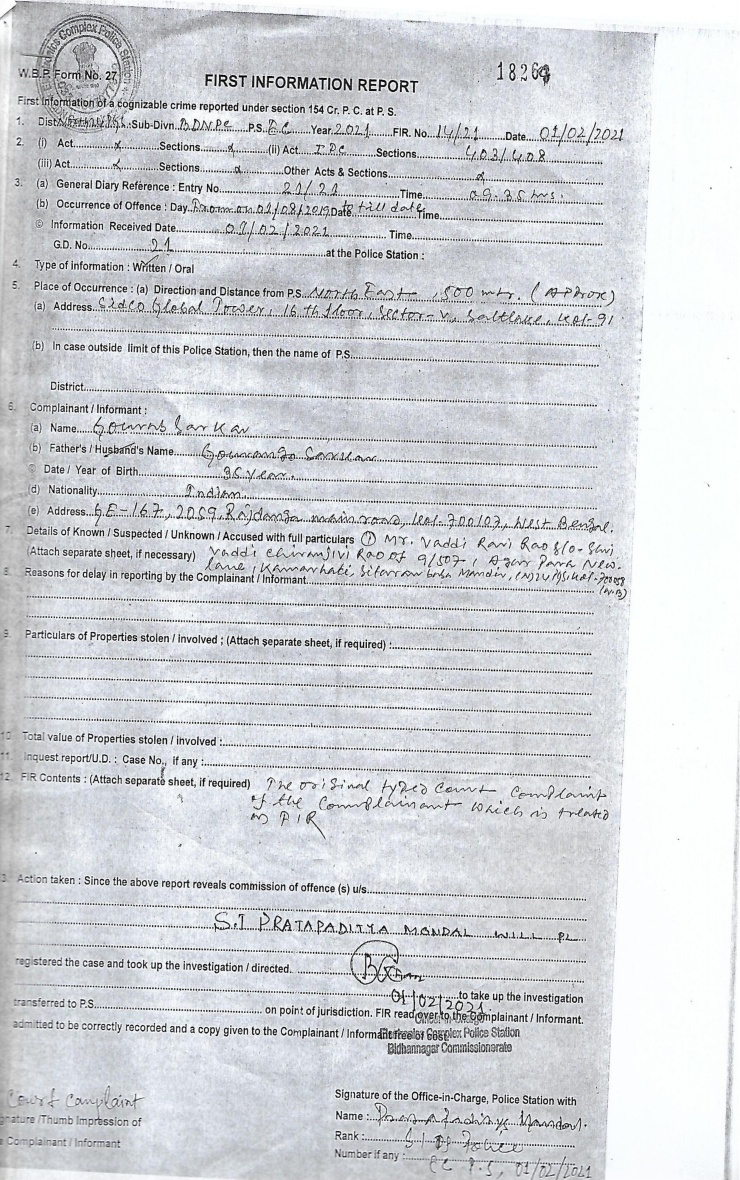 Electronics Complex Police Station
18269
W.B.P. Form No. 27
FIRST INFORMATION REPORT
First Information of a cognizable crime reported under section 154 Cr. P. C. at P. S.
1. Dist. Sub-Divn. BDNPC P.S. EC Year 2021 FIR. No. 14/21 Date 01/02/2021
2. (i) Act x Sections x (ii) Act IPC Sections 403/408
(iii) Act x Sections x Other Acts & Sections x
3. (a) General Diary Reference : Entry No. 21/21 Time 09.35 hrs.
(b) Occurrence of Offence : Day From on 01/08/2019 Date to till date Time
© Information Received Date 01/02/2021 Time
G.D. No. 21 at the Police Station :
4. Type of information : Written / Oral
5. Place of Occurrence : (a) Direction and Distance from P.S. North East, 500 mtr. (Approx)
(a) Address Global Tower, 16th floor, Sector-V, Saltlake, Kol-91
(b) In case outside limit of this Police Station, then the name of P.S.
District
6. Complainant / Informant :
(a) Name Sarkar
(b) Father's / Husband's Name Sarkar
Date / Year of Birth 35 Year.
(d) Nationality Indian.
(e) Address GE-167, 2059, Rajdanga main road, Kol-700107, West Bengal.
7. Details of Known / Suspected / Unknown / Accused with full particulars ① Mr. Vaddi Ravi Rao S/o- Shri
(Attach separate sheet, if necessary) Vaddi Chiranjivi Rao of 9/507, Para New
lane, Kamarhati, Mandir, Kol-700058
(W.B)
8. Reasons for delay in reporting by the Complainant / Informant
9. Particulars of Properties stolen / involved ; (Attach separate sheet, if required) :
10. Total value of Properties stolen / involved :
11. Inquest report/U.D. : Case No., if any :
12. FIR Contents : (Attach separate sheet, if required) The original typed Court Complaint
of the Complainant which is treated
as FIR
3. Action taken : Since the above report reveals commission of offence (s) u/s
S.I PRATAPADITYA MANDAL WILL PL
registered the case and took up the investigation / directed.
01/02/2021 to take up the investigation
transferred to P.S. on point of jurisdiction. FIR read over to the Complainant / Informant.
admitted to be correctly recorded and a copy given to the Complainant / Informant free of cost.
Electronics Complex Police Station
Bidhannagar Commissionerate
Court Complaint
Signature of the Office-in-Charge, Police Station with
gnature /Thumb Impression of
Name : Pratapaditya Mandal.
Complainant / Informant
Rank : SI of Police
Number if any : EC P.S, 01/02/2021